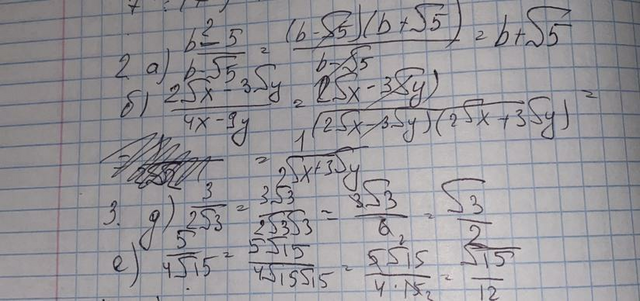 2 а) (b² - 5)/(b - √5) = ((b - √5)(b + √5))/(b - √5) = b + √5
б) (2√x - 3√y)/(4x - 9y) = (2√x - 3√y)/((2√x - 3√y)(2√x + 3√y)) =
= 1/(2√x + 3√y)
3. д) 3/(2√3) = 3√3/(2√3√3) = 3√3/6₂ = √3/2
е) 5/(4√15) = 5√15/(4√15√15) = 5√15/(4·15₂) = √15/12